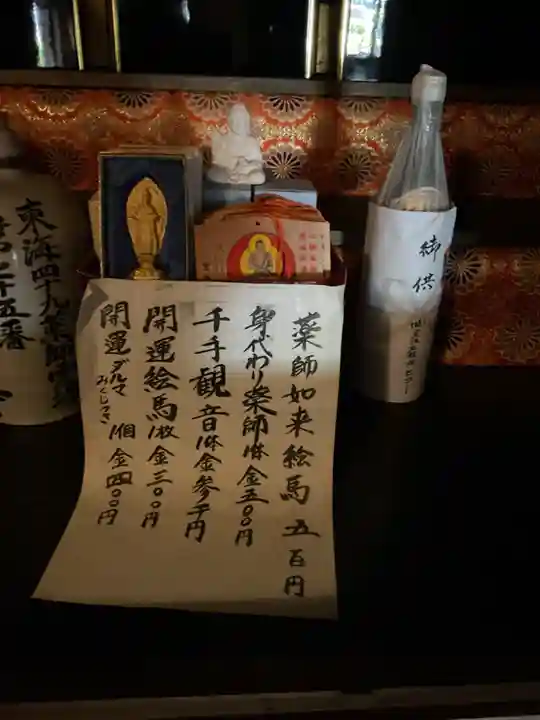 薬師如来絵馬 五百円
身代わり薬師 1体 金五〇〇円
千手観音 1体 金参千円
開運絵馬 1枚 金三〇〇円
開運ダルマ 1個 金四〇〇円
みくじつき
御供
東海四十九薬師霊場
第二十五番